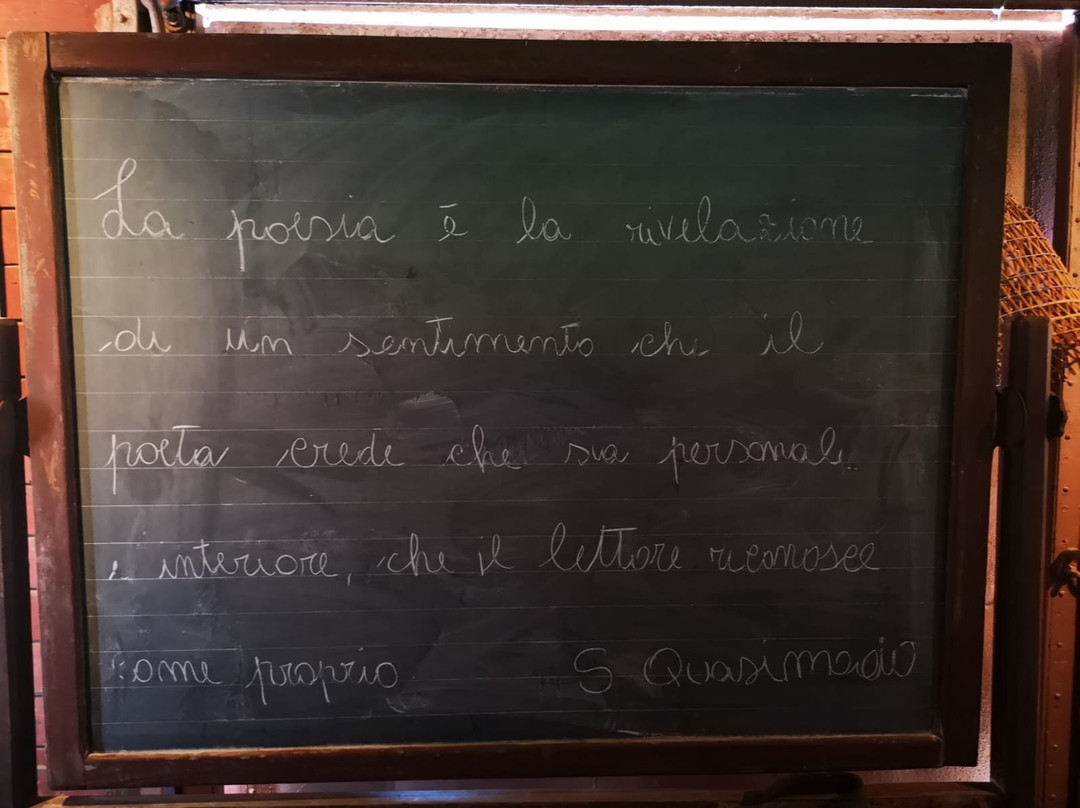 La poesia è la rivelazione
di un sentimento che il
poeta crede che sia personale
e interiore, che il lettore riconosce
come proprio S Quasimodo